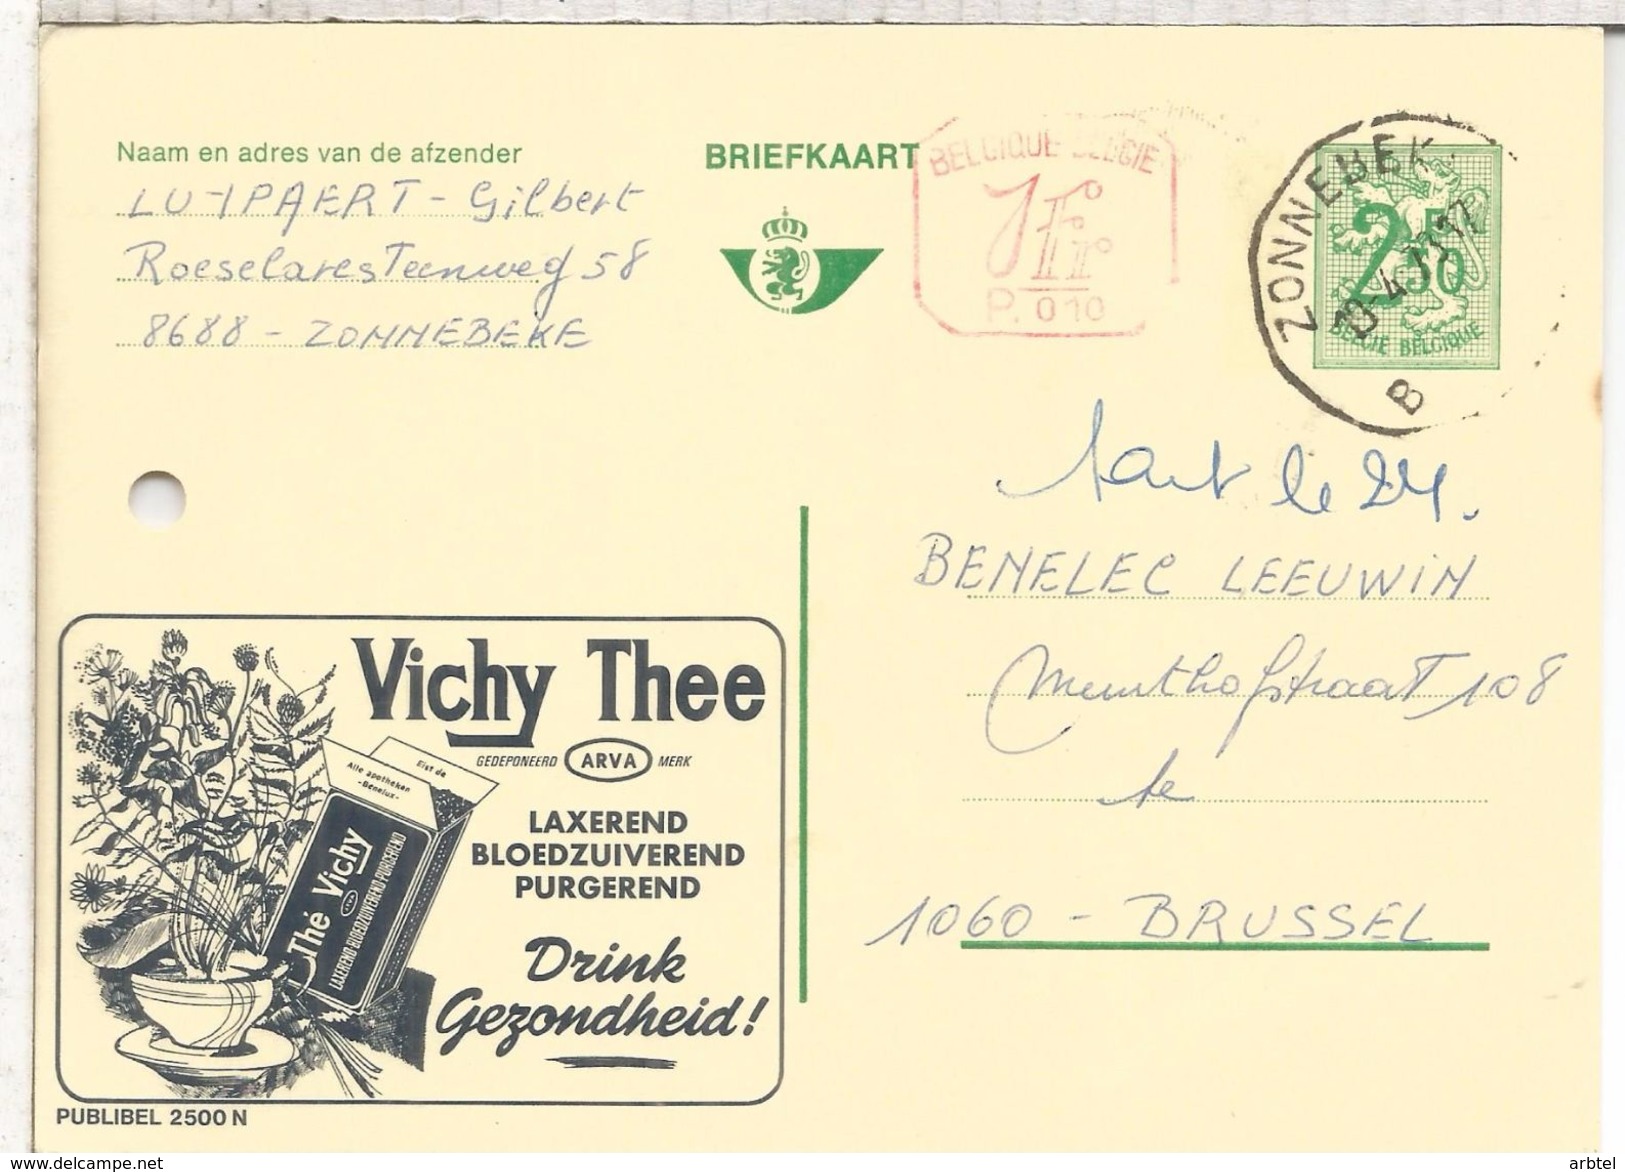 Naam en adres van de afzender
LUYPAERT - Gilbert
Roeselaresteenweg 58
8688 - ZONNEBEKE
BRIEFKAART
BELGIQUE BELGIE
1 Fr
P. 010
ZONNEBEKE
B
2F50
BELGIE BELGIQUE
le 24.
BENELEC LEEUWIN
Munthofstraat 108
te
1060 - BRUSSEL
Vichy Thee
GEDEPONEERD ARVA MERK
LAXEREND
BLOEDZUIVEREND
PURGEREND
Drink
Gezondheid!
Alle apotheken
-Benelux-
Eist de
Thé Vichy
ARVA
LAXEREND-BLOEDZUIVEREND-PURGEREND
PUBLIBEL 2500 N
www.delcampe.net
arbtel